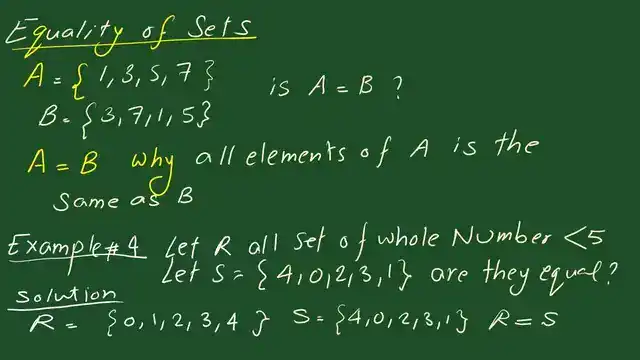 Equality of Sets
A = { 1, 3, 5, 7 }
is A = B ?
B = { 3, 7, 1, 5 }
A = B why all elements of A is the
same as B
Example # 4 Let R all set of whole Number < 5
Let S = { 4, 0, 2, 3, 1 } are they equal?
Solution
R = { 0, 1, 2, 3, 4 } S = { 4, 0, 2, 3, 1 } R = S